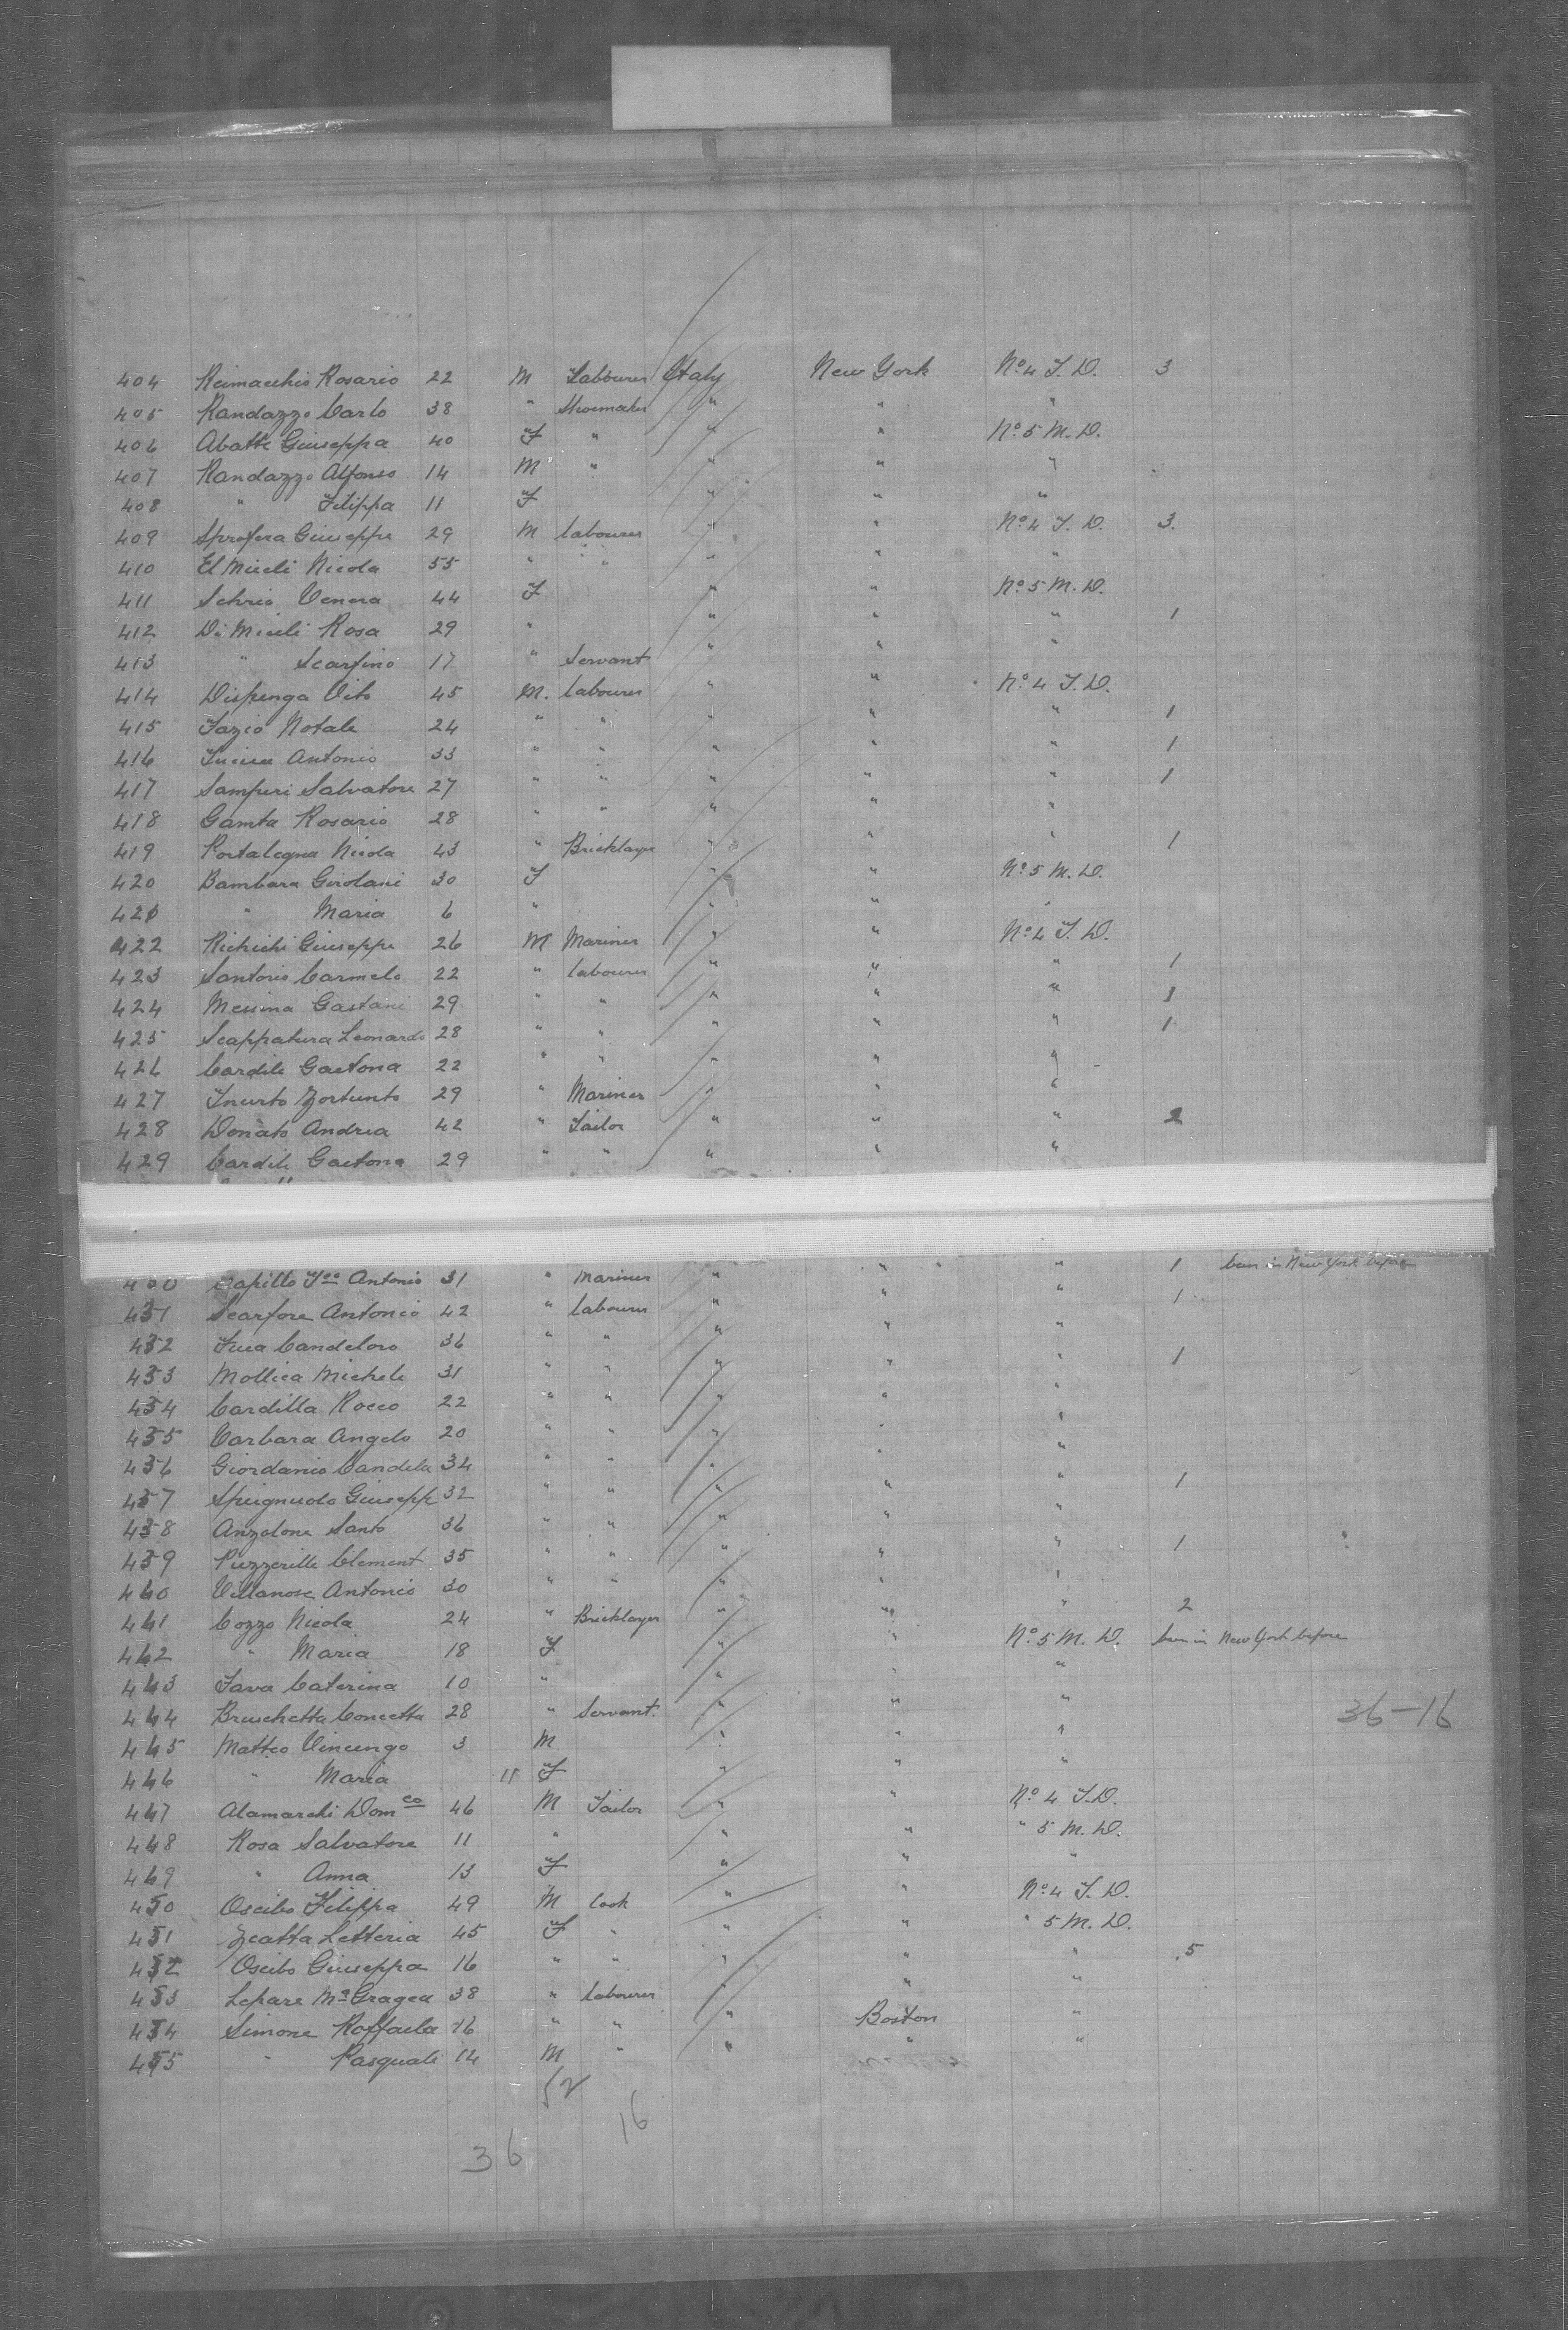 404 Reimacchio Rosario 22 M Labourer Italy New York No. 4 S. D. 3
405 Randazzo Carlo 38 " Shoemaker " " "
406 Abatte Giuseppa 40 F " " " No. 5 M. D.
407 Randazzo Alfonso 14 M " " " "
408 " Filippa 11 F " " "
409 Sprofera Giuseppe 29 M labourer " " No. 4 S. D. 3.
410 El Miceli Nicola 55 " " " " "
411 Schrio Venera 44 F " " No. 5 M. D.
412 Di Miceli Rosa 29 " " " " 1
413 " Scarfino 17 " Servant " " "
414 Dispenga Vito 45 M. labourer " " No. 4 S. D.
415 Fazio Notale 24 " " " " " 1
416 Antonio 33 " " " " " 1
417 Samperi Salvatore 27 " " " " " 1
418 Gamta Rosario 28 " " " " "
419 Portalegna Nicola 43 " Bricklayer " " " 1
420 Bambara Girolani 30 F " " No. 5 M. D.
421 " Maria 6 " " " "
422 Richichi Giuseppe 26 M Mariner " " No. 4 S. D.
423 Santoris Carmelo 22 " labourer " " " 1
424 Messina Gastani 29 " " " " " 1
425 Scappatura Leonardo 28 " " " " " 1
426 Cardile Gaetona 22 " " " " "
427 29 " Mariner " " "
428 Donato Andrea 42 " Tailor " " " 2
429 Cardile Gaetona 29 " " " " "
430 Capillo Antonio 31 " Mariner " " " 1 been in New York before
431 Scarfore Antonio 42 " labourer " " " 1
432 Candeloro 36 " " " " "
433 Mollica Michele 31 " " " " " 1
434 Cardilla Rocco 22 " " " " "
435 Carbara Angelo 20 " " " " "
436 Giordanio Candela 34 " " " " "
437 Spuignuolo Giusepp 32 " " " " " 1
438 Anzelone Santo 36 " " " " "
439 Puzzerille Clement 35 " " " " " 1
440 Villanose Antonio 30 " " " " "
441 Cozzo Nicola 24 " Bricklayer " " " 2
442 " Maria 18 F " " No. 5 M. D. been in New York before
443 Fava Caterina 10 " " " "
444 Bruschetta Concetta 28 " Servant. " " "
36-16
445 Matteo Vincenzo 3 M " " "
446 " Maria 11 F " " "
447 Alamarchi Domco 46 M Tailor " " No. 4 S. D.
448 Rosa Salvatore 11 " " " " 5 M. D.
449 " Anna 13 F " " "
450 Oscibo Filippa 49 M Cook " " No. 4 S. D.
451 Zcatta Letteria 45 F " " " " 5 M. D.
452 Oscibo Giuseppa 16 " " " " " 5
453 Lepare Ma Gragea 38 " labourer " " "
454 Simone Raffaela 16 " " " Boston "
455 " Pasquale 14 M " " " "
52
16
36